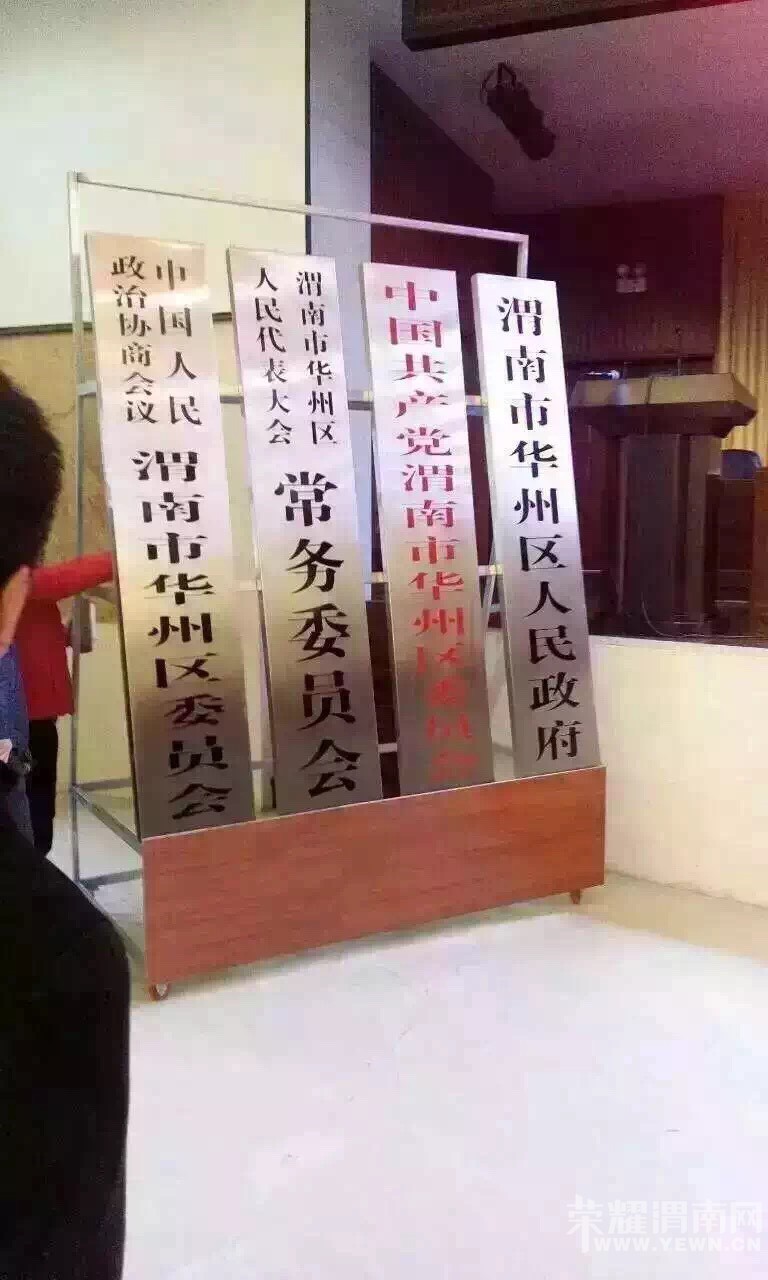 中国人民
政治协商会议
渭南市华州区委员会
渭南市华州区
人民代表大会
常务委员会
中国共产党渭南市华州区委员会
渭南市华州区人民政府
荣耀渭南网
WWW.YEWN.CN